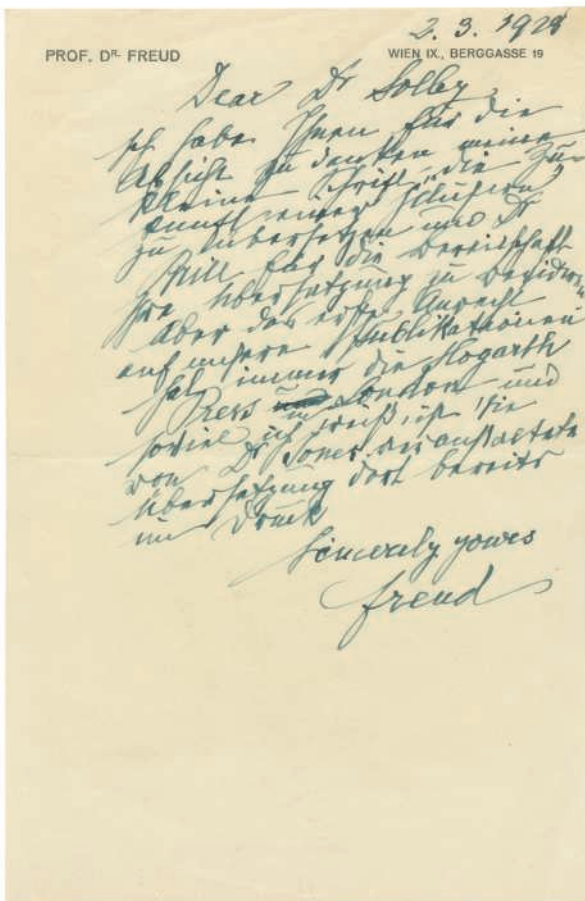 2. 3. 1928
PROF. DR. FREUD
WIEN IX., BERGGASSE 19
Dear Dr Solby
Ich habe Ihnen für die
Absicht zu danken meine
kleine Schrift, die Zu-
kunft einer Illusion,
zu übersetzen und Dr
Brill für die Bereitschaft
Ihre Übersetzung zu revidiren
Aber das erste Anrecht
auf unsere Publikationen
hat immer die Hogarth
Press in London und
soviel ich weiß, ist die
von Dr Jones veranstaltete
Übersetzung dort bereits
im Druck
Sincerely yours
Freud